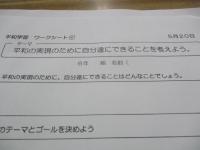 平和学習 ワークシート④ 5月20日
テーマ
平和の実現のために自分達にできることを考えよう。
6年 組 名前(
平和の実現のために、自分達にできることはどんなことでしょう。
のテーマとゴールを決めよう